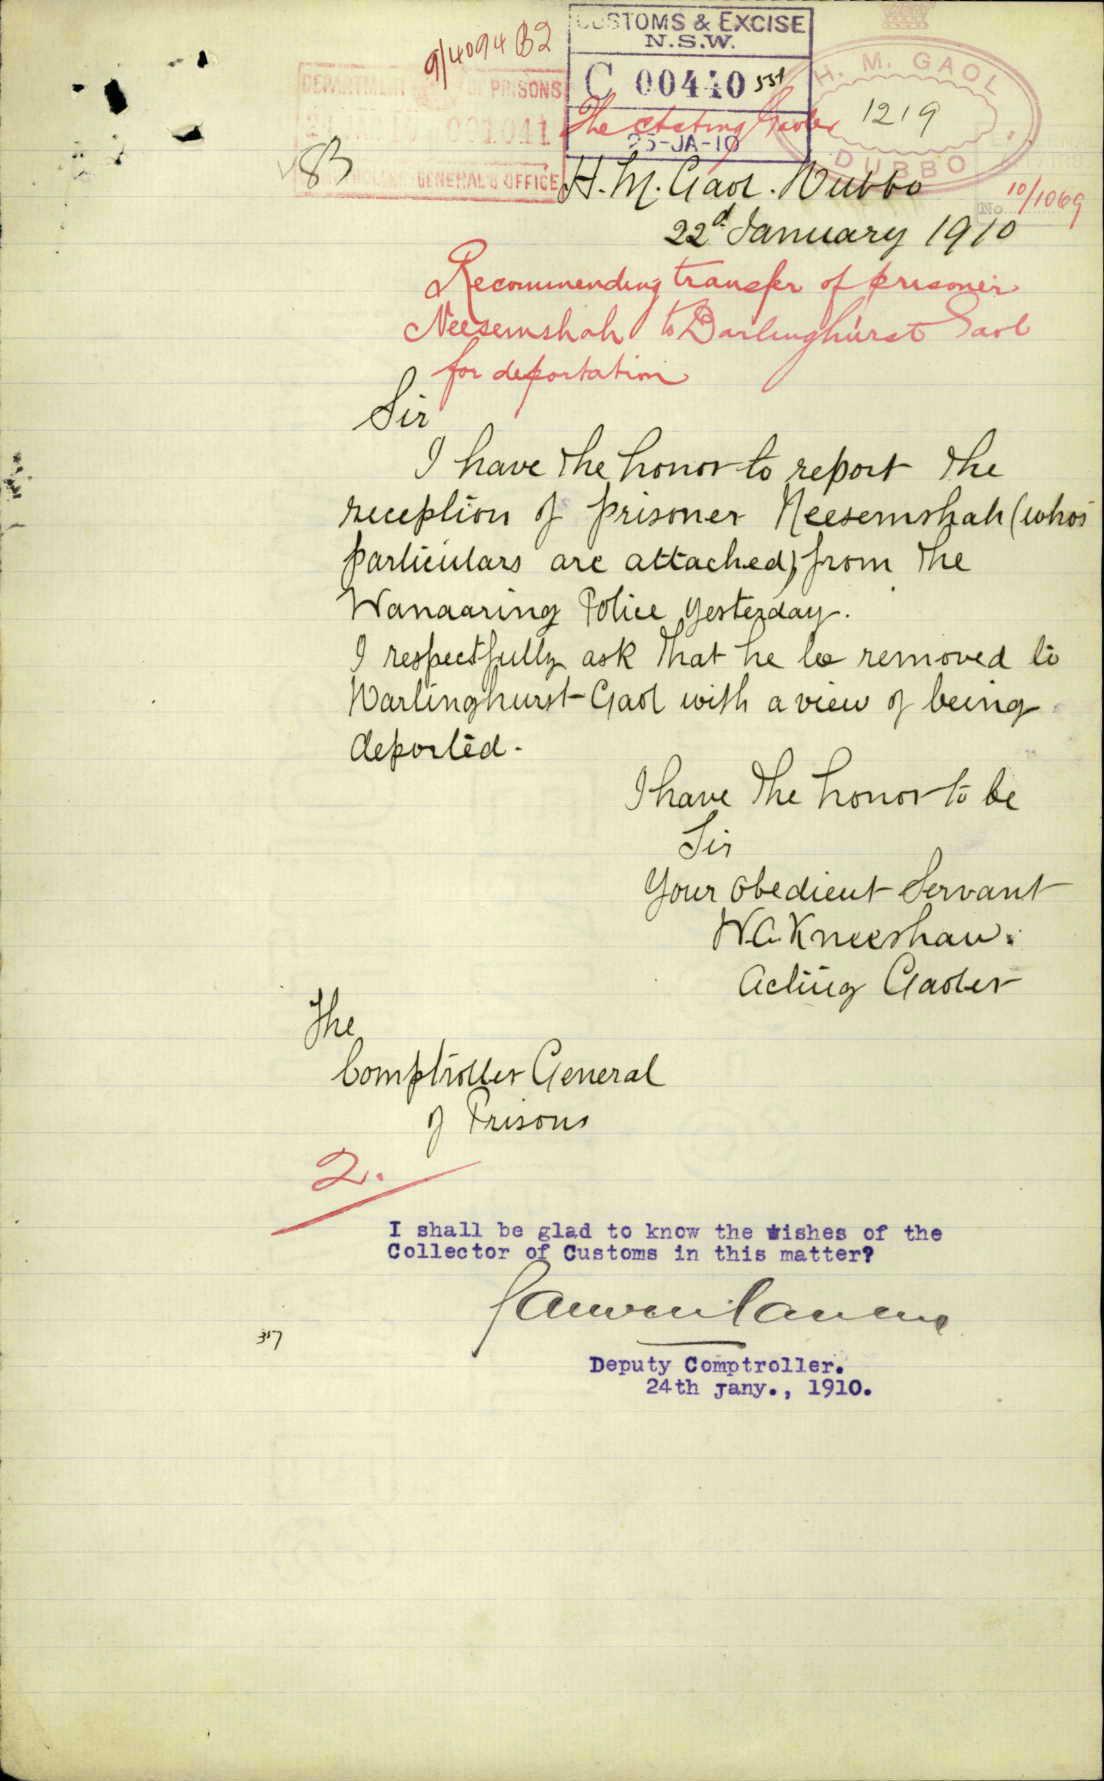 9/4094 B2
CUSTOMS & EXCISE
N.S.W.
C 00440
25-JA-10
DEPARTMENT OF PRISONS
001041
GENERAL'S OFFICE
H. M. GAOL
1219
DUBBO
The Acting Gaoler
83
H. M. Gaol. Dubbo
No 10/1069
22d January 1910
Recommending transfer of prisoner
Neesemshah to Darlinghurst Gaol
for deportation
Sir
I have the honor to report the
reception of prisoner Neesemshah (whos
particulars are attached), from the
Wanaaring Police yesterday.
I respectfully ask that he be removed to
Darlinghurst Gaol with a view of being
deported.
I have the honor to be
Sir
Your obedient Servant
W.C. Kneeshaw.
Acting Gaoler
The
Comptroller General
of Prisons
2.
I shall be glad to know the wishes of the
Collector of Customs in this matter?
Deputy Comptroller.
24th Jany., 1910.
357